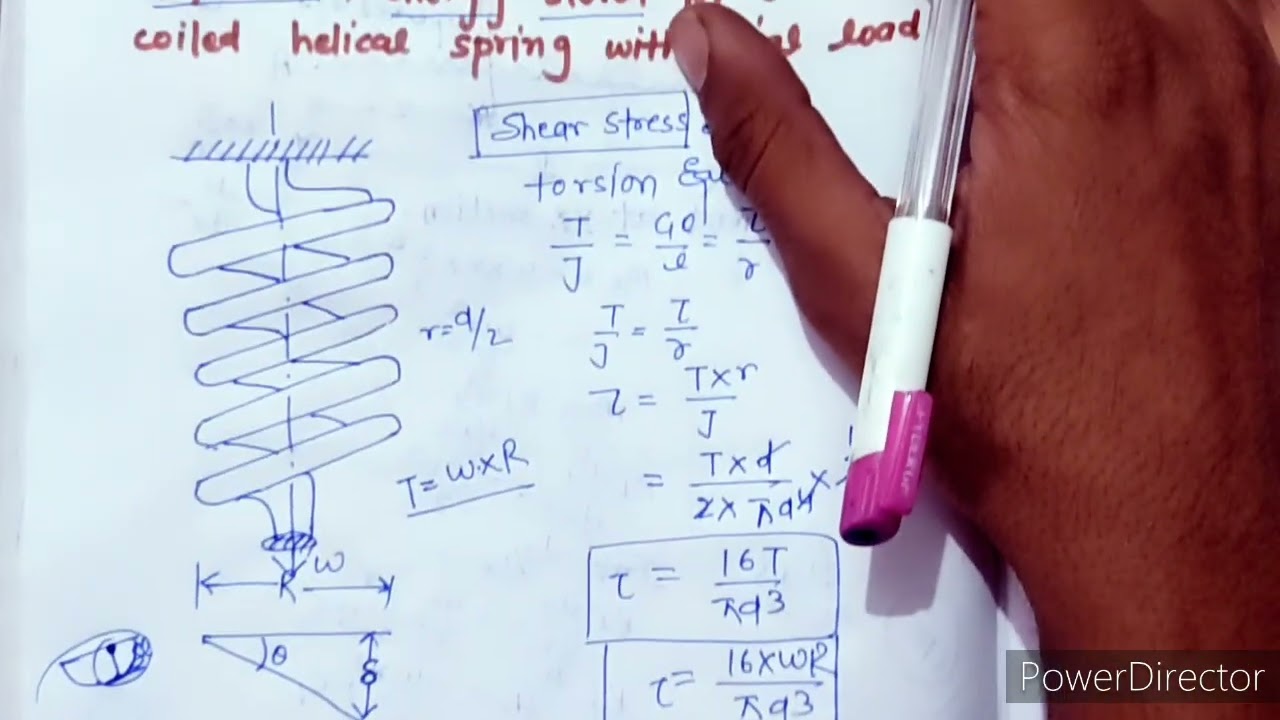 coiled helical spring with load
Shear stress
torsion
T/J = Gθ/l = τ/r
r=d/2
T/J = τ/r
τ = T×r/J
T=W×R
= T×d/2×πd⁴ ×
τ = 16T/πd3
W
R
θ
δ
τ= 16×WR/πd3
PowerDirector